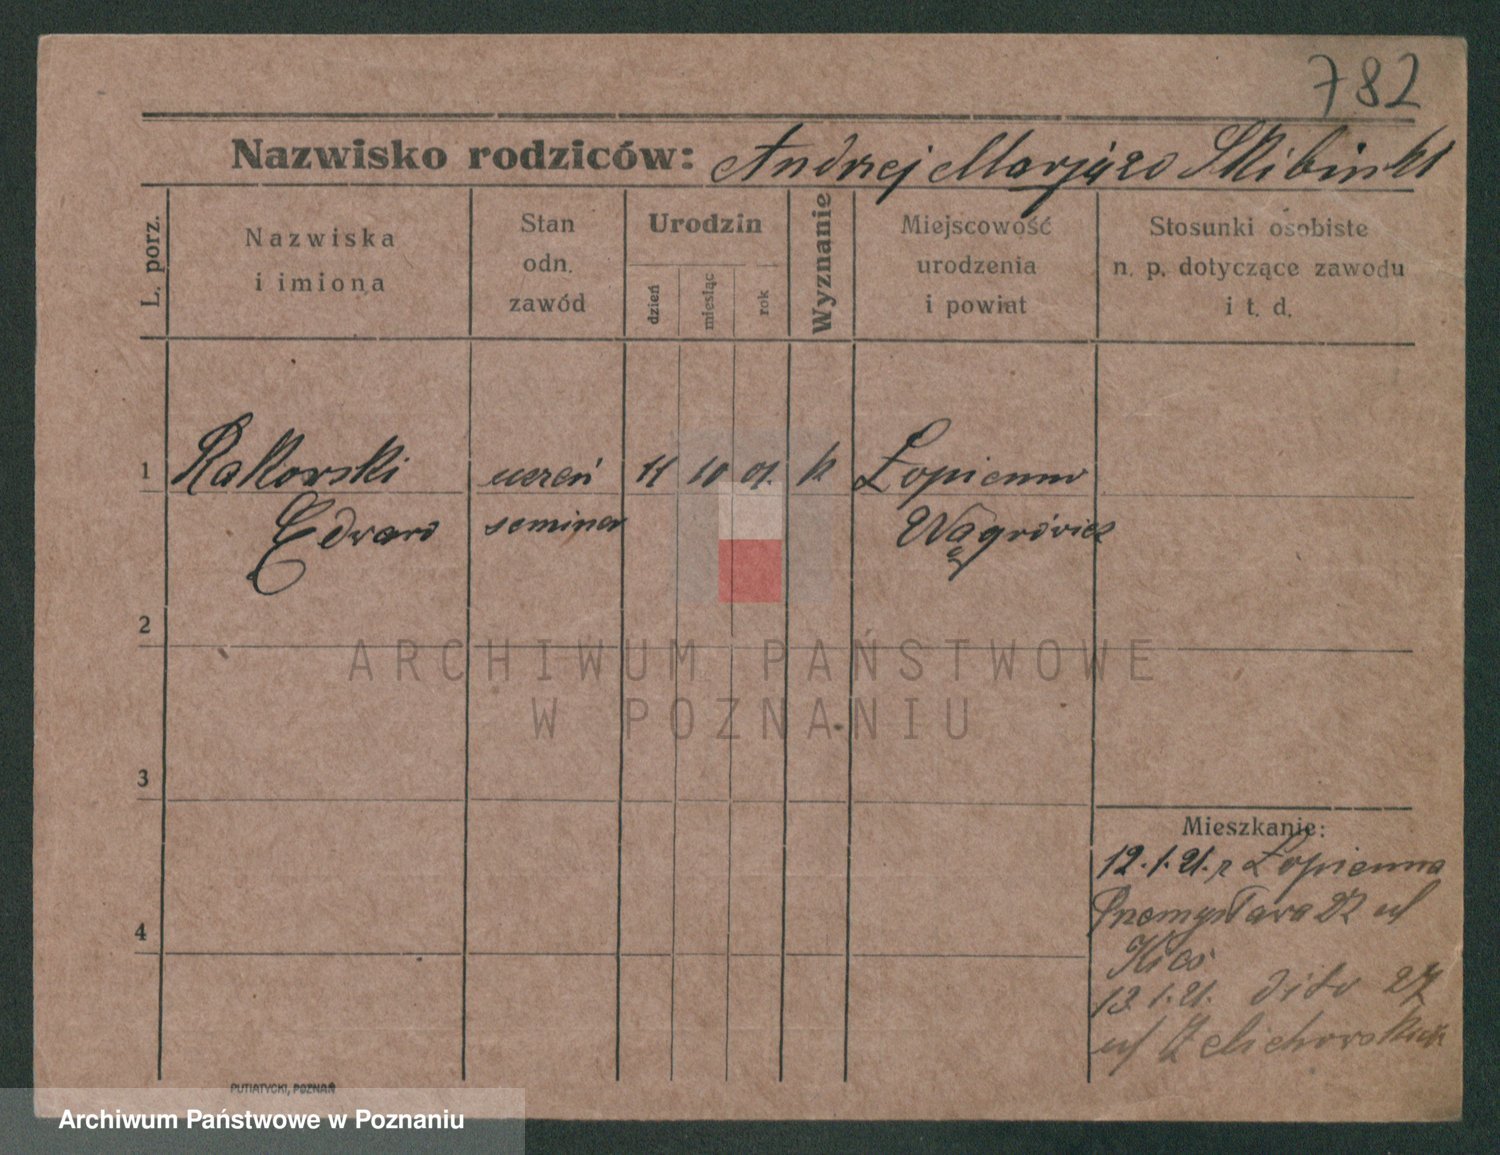 782
Nazwisko rodziców: Andrzej Marja zo Skibinski
L. porz.
Nazwiska
i imiona
Stan
odn.
zawód
Urodzin
dzień
miesiąc
rok
Wyznanie
Miejscowość
urodzenia
i powiat
Stosunki osobiste
n. p. dotyczące zawodu
i t. d.
1 Rakowski uczeń 11 10 01. k Łopienno
Edward seminar Wągrówiec
2
ARCHIWUM PAŃSTWOWE
W POZNANIU
3
Mieszkanie:
12.1.21. z Łopienna
Przemysława 27 u/
4
13.1.21. dito 27
u/
PUTIATYCKI, POZNAŃ
Archiwum Państwowe w Poznaniu